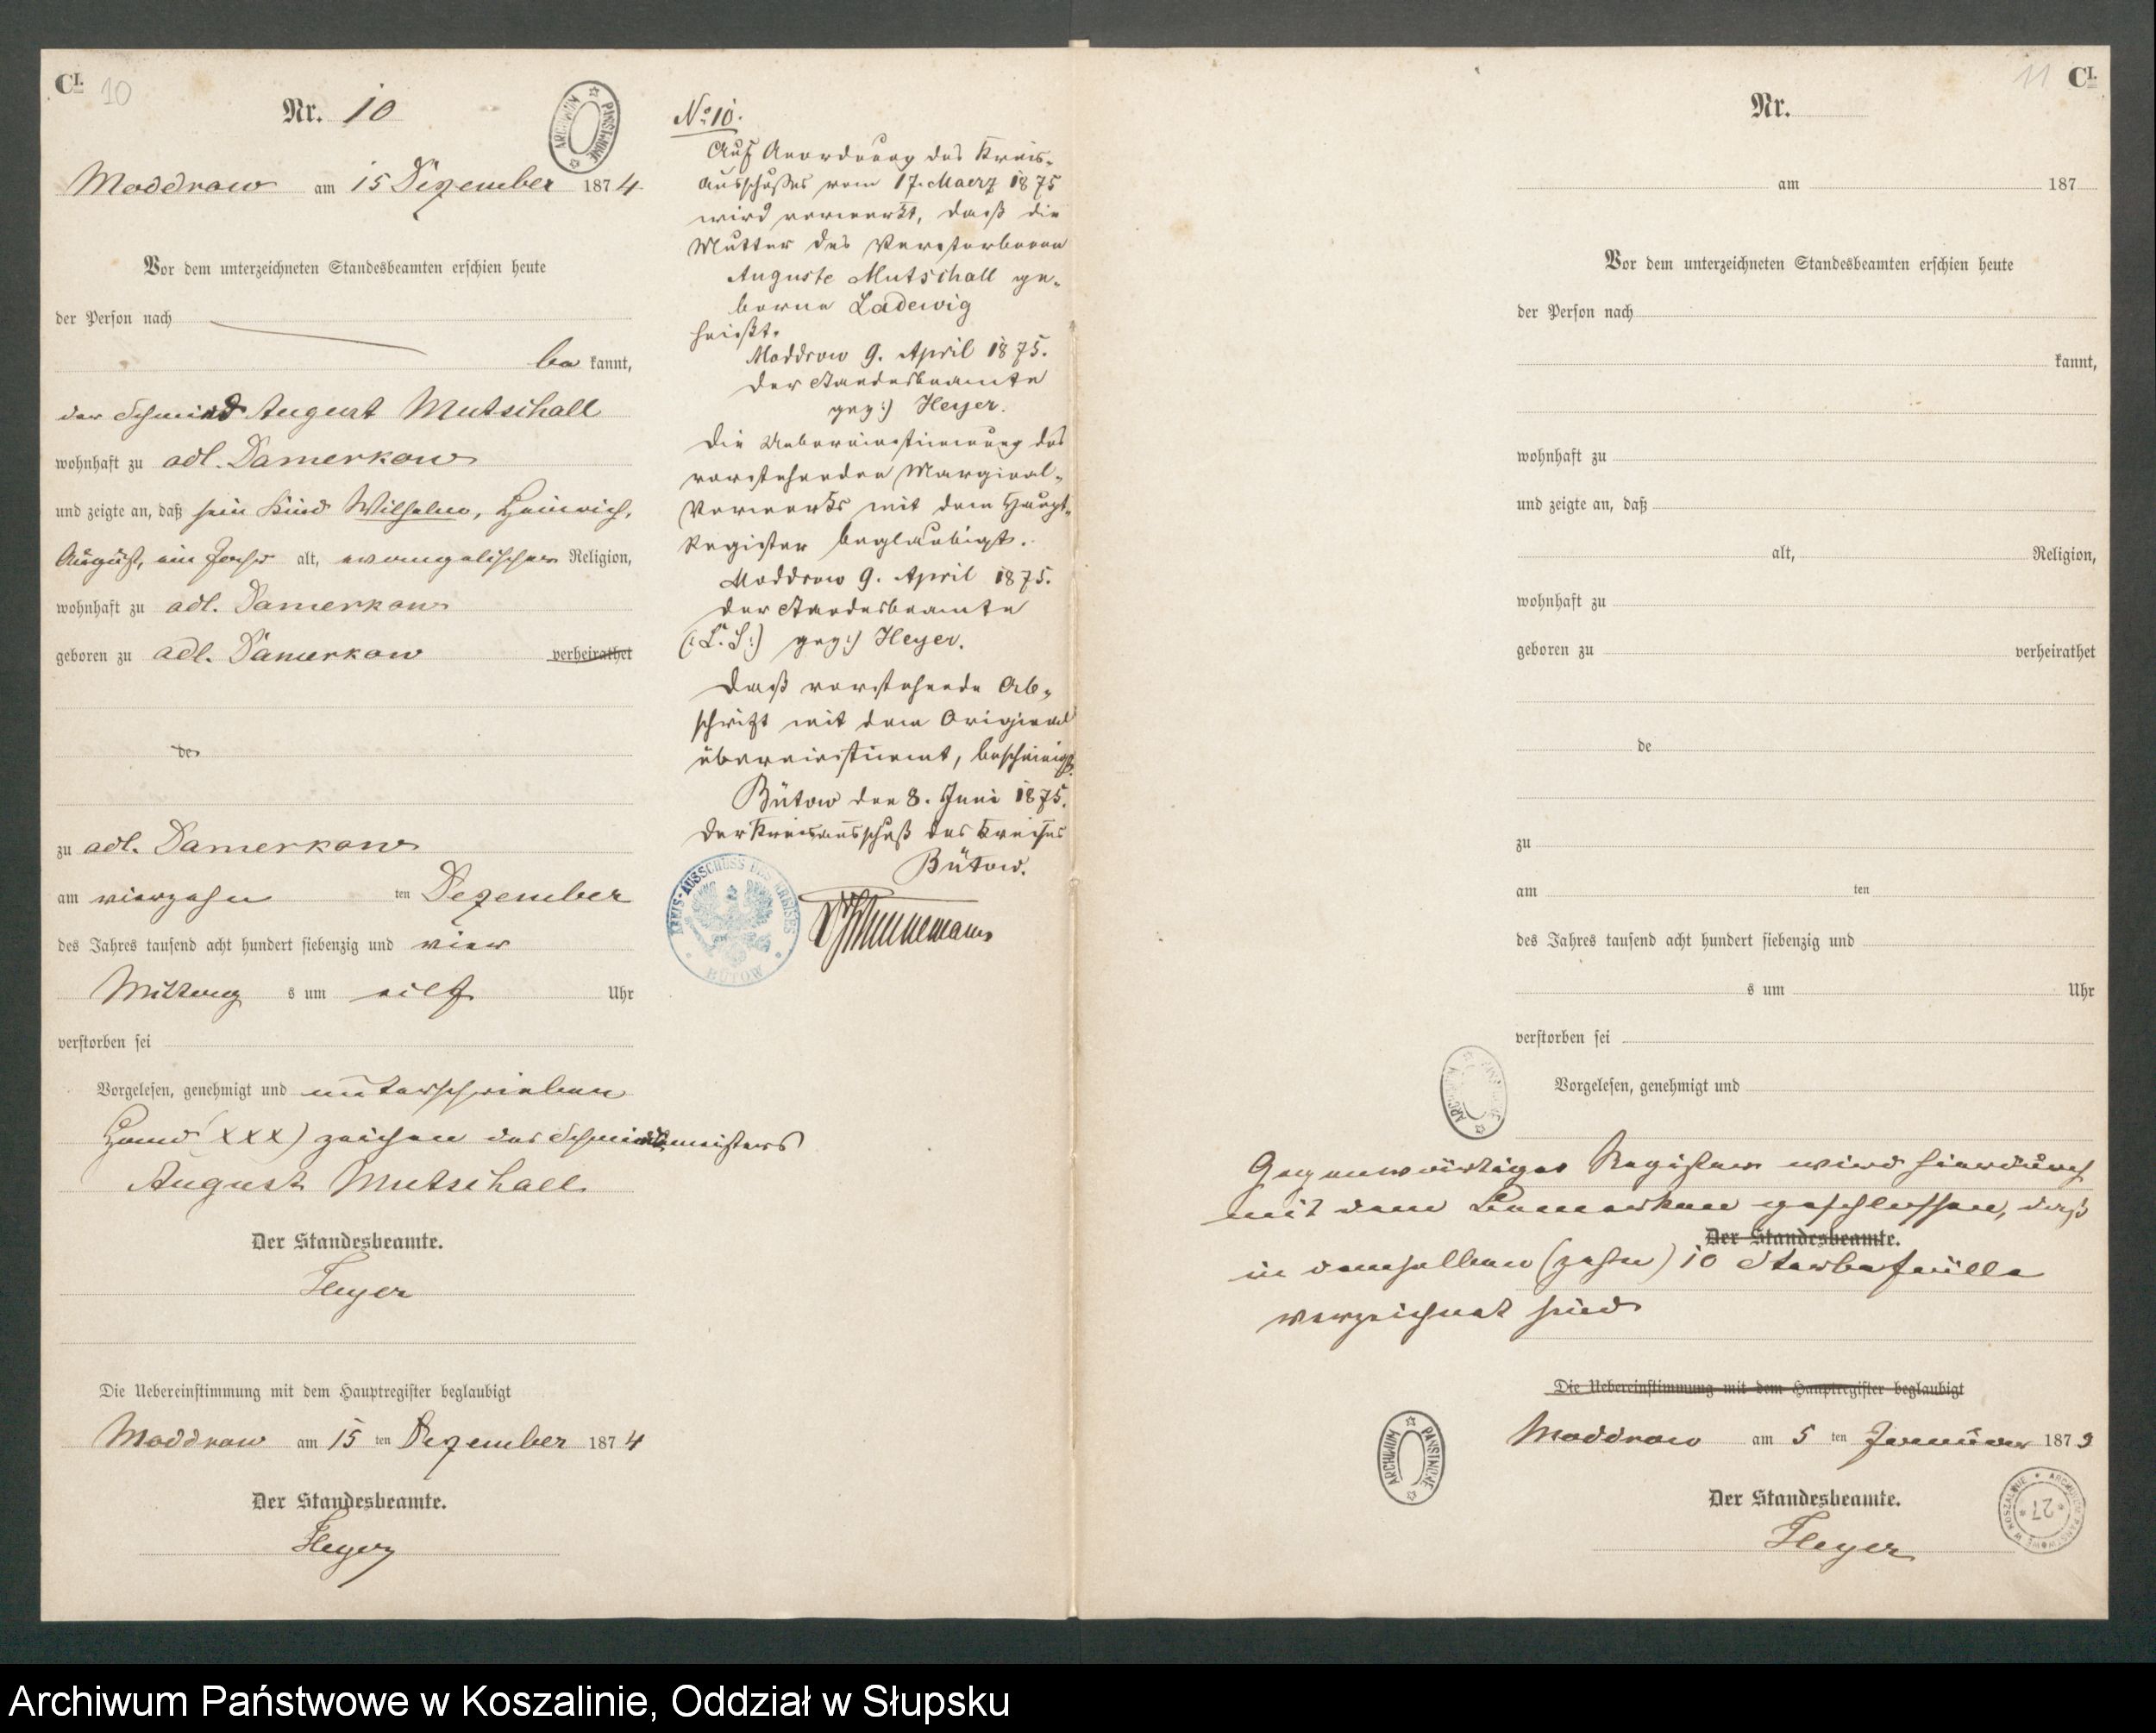 C I.
10
Nr. 10
ARCHIWUM PAŃSTWOWE
Moddrow am 15 Dezember 1874.
Vor dem unterzeichneten Standesbeamten erschien heute
der Person nach
be kannt,
der Schmied August Mutschall
wohnhaft zu adl. Damerkow
und zeigte an, daß sein Kind Wilhelm, Heinrich,
August, ein Jahr alt, evangelischer Religion,
wohnhaft zu adl. Damerkow
geboren zu adl. Damerkow verheirathet
de
zu adl. Damerkow
am vierzehn ten Dezember
des Jahres tausend acht hundert siebenzig und vier
Mittag s um eilf Uhr
verstorben sei
Vorgelesen, genehmigt und unterschrieben
Hand (XXX) zeichen des Schmiedemeisters
August Mutschall
Der Standesbeamte.
Heyer
Die Uebereinstimmung mit dem Hauptregister beglaubigt
Moddrow am 15 ten Dezember 1874
Der Standesbeamte.
Heyer
No. 10.
Auf Anordnung des Kreis-
Ausschußes vom 17. Maerz 1875
wird vermerkt, daß die
Mutter des Verstorbenen
Auguste Mutschall ge-
borne Ladewig
heißt.
Moddrow 9. April 1875.
Der Standesbeamte
gez:) Heyer.
Die Uebereinstimmung des
vorstehenden Marginal-
Vermerks mit dem Haupt-
Register beglaubigt.
Moddrow 9. April 1875.
Der Standesbeamte
(:L. S:) gez:) Heyer.
Daß vorstehende Ab-
schrift mit dem Original
übereinstimmt, bescheinigt.
Bütow den 8. Juni 1875.
Der Kreisausschuß des Kreises
Bütow.
KREIS-AUSSCHUSS DES KREISES BÜTOW
11
C I.
Nr.
am 187
Vor dem unterzeichneten Standesbeamten erschien heute
der Person nach
kannt,
wohnhaft zu
und zeigte an, daß
alt, Religion,
wohnhaft zu
geboren zu verheirathet
de
zu
am ten
des Jahres tausend acht hundert siebenzig und
s um Uhr
verstorben sei
ARCHIWUM PAŃSTWOWE
Vorgelesen, genehmigt und
Gegenwärtiges Register wird hierdurch
mit dem Bemerken geschlossen, daß
Der Standesbeamte.
in demselben (zehn) 10 Sterbefälle
verzeichnet sind
Die Uebereinstimmung mit dem Hauptregister beglaubigt
ARCHIWUM PAŃSTWOWE
Moddrow am 5 ten Januar 187
Der Standesbeamte.
Heyer
ARCHIWUM PAŃSTWOWE W KOSZALINIE
27
Archiwum Państwowe w Koszalinie, Oddział w Słupsku